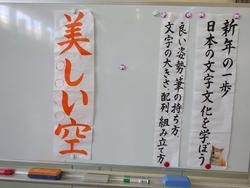 新年の一歩
日本の文字文化を学ぼう
良い姿勢・筆の持ち方
文字の大きさ、配列、組み立て方
美しい空